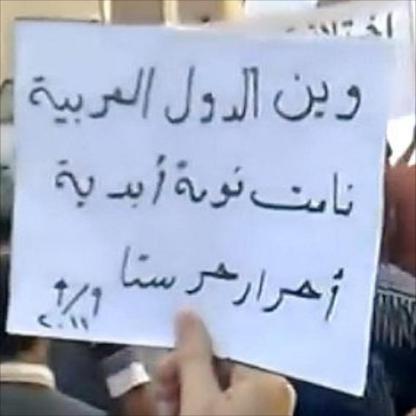 وين الدول العربية
نامت نومة أبدية
أحرار حرستا
٩/٩
٢٠١١